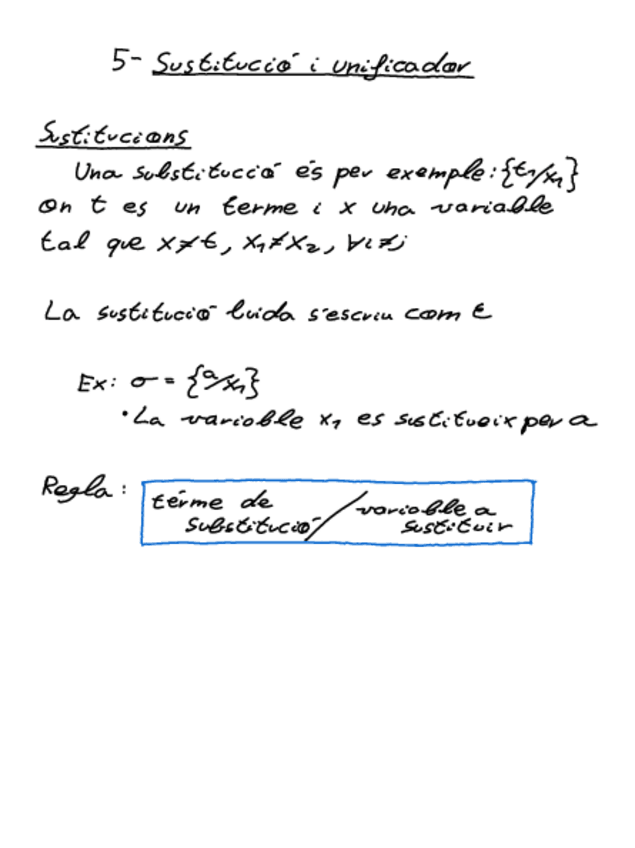 5- Sustitució i unificador
Sustitucions
Una substitucció és per exemple: {t₁/x₁}
on t es un terme i x una variable
tal que x≠t, x₁≠x₂, ∀i≠j
La sustitució buida s'escriu com ε
Ex: σ = {a/x₁}
• La variable x₁ es sustitueix per a
Regla: térme de / variable a
substitució sustituir